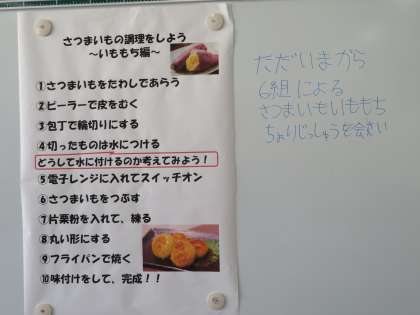 さつまいもの調理をしよう
～いももち編～
①さつまいもをたわしであらう
②ピーラーで皮をむく
③包丁で輪切りにする
④切ったものは水につける
どうして水に付けるのか考えてみよう！
⑤電子レンジに入れてスイッチオン
⑥さつまいもをつぶす
⑦片栗粉を入れて、練る
⑧丸い形にする
⑨フライパンで焼く
⑩味付けをして、完成！！
ただいまから
6組による
さつまいもいももち
ちょりじっしゅうを